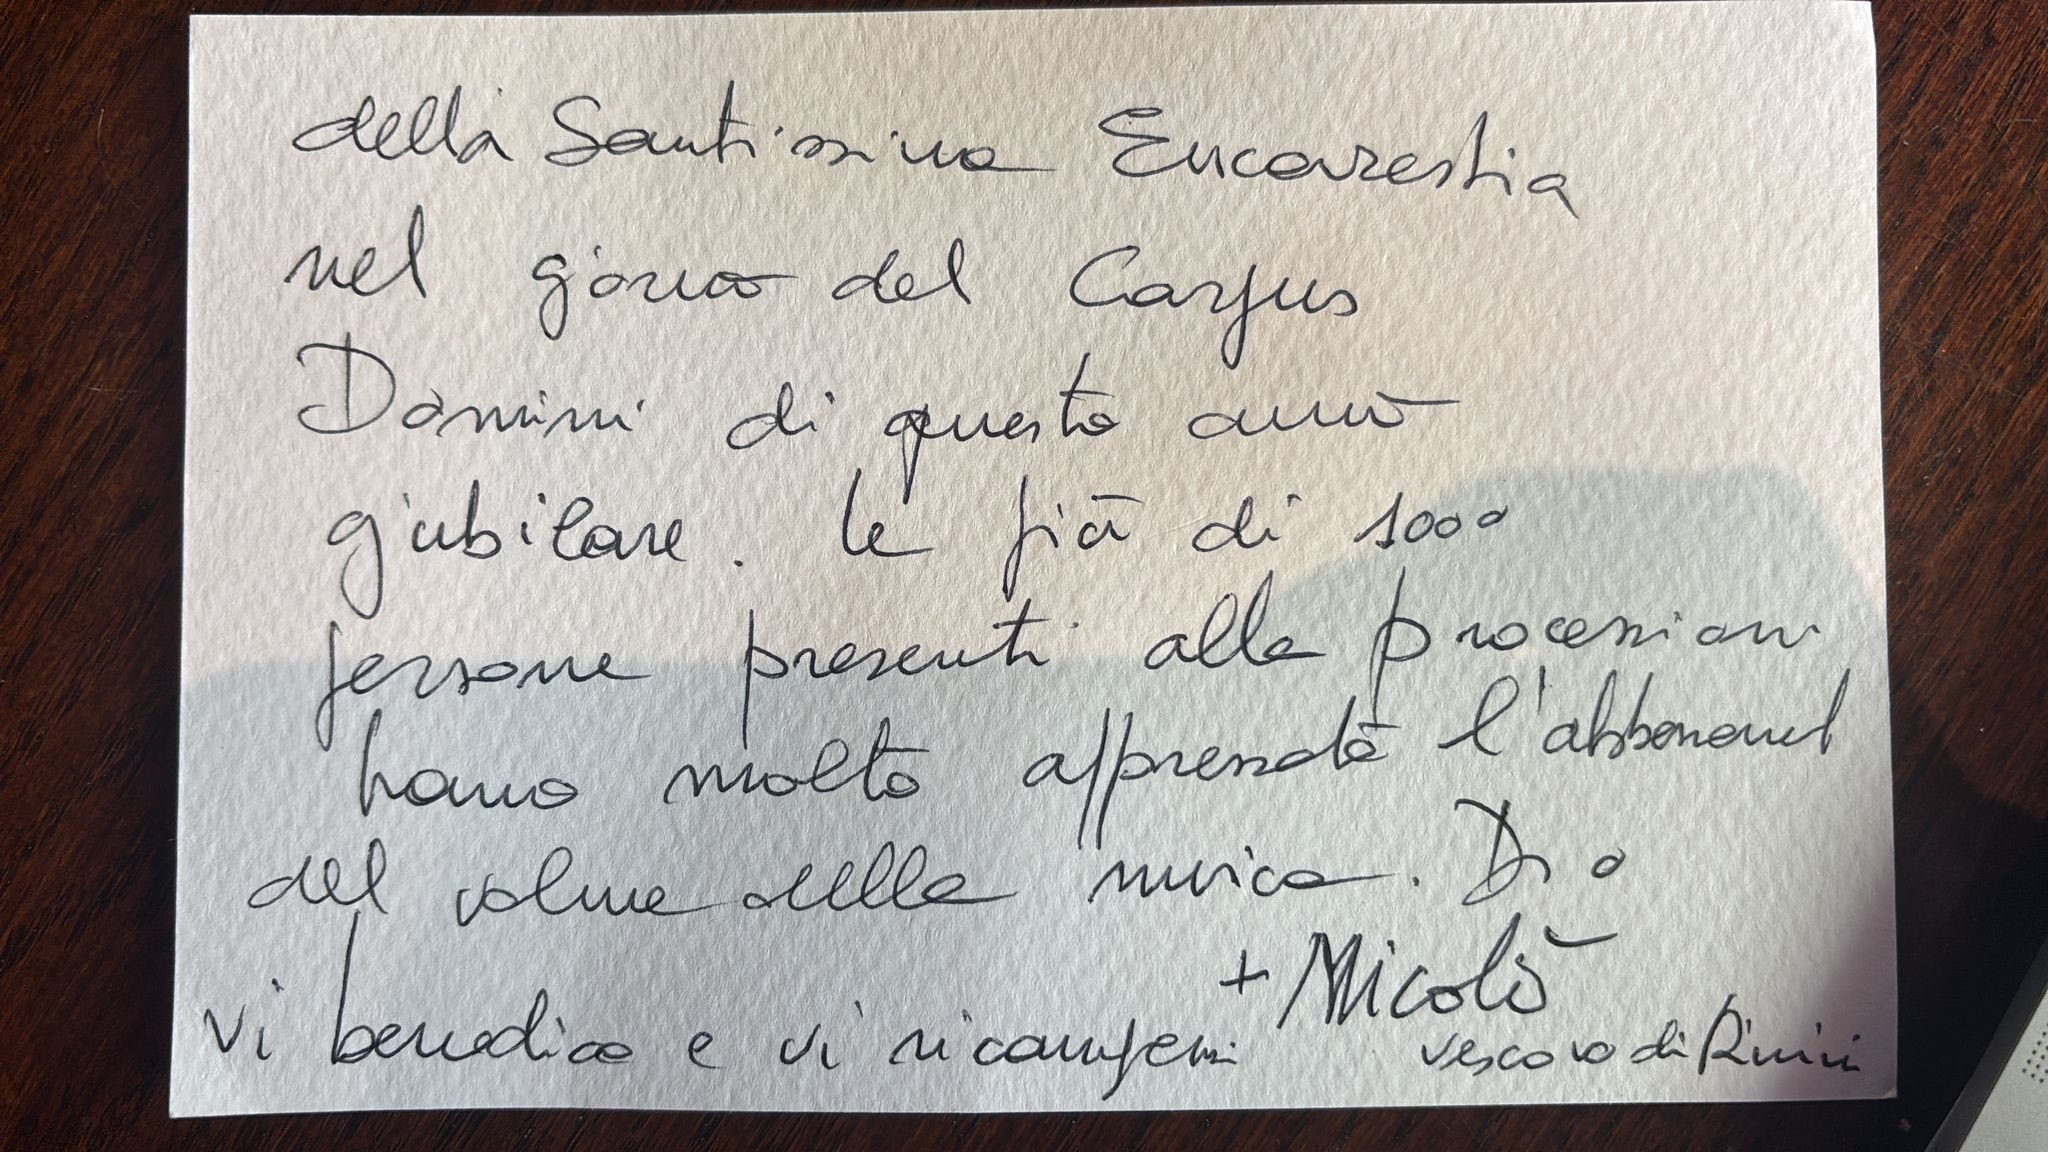 della Santissima Eucarestia
nel giorno del Corpus
Domini di questo anno
giubilare. Le più di 1000
persone presenti alla processione
hanno molto apprezzato l'abbassament
del volume della musica. Dio
vi benedica e vi ricompensi
+ Nicolò
vescovo di Rimini